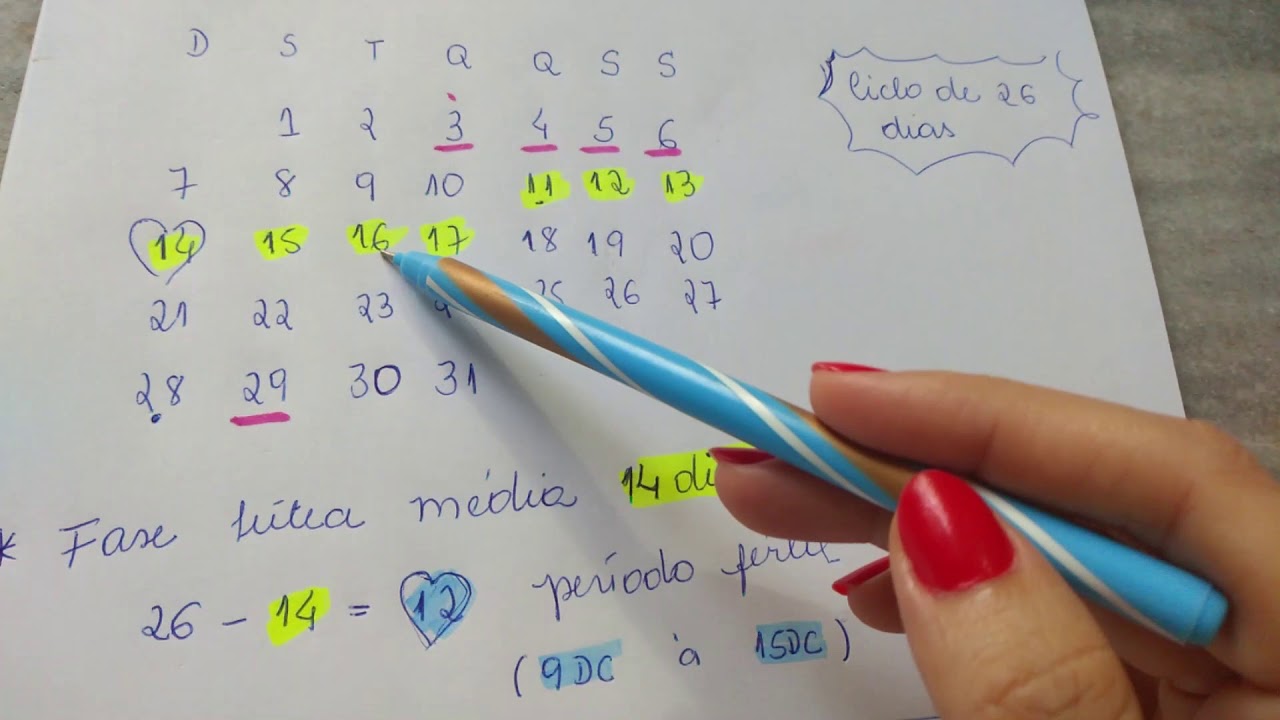 D S T Q Q S S
Ciclo de 26
dias
1 2 3 4 5 6
7 8 9 10 11 12 13
14 15 16 17 18 19 20
21 22 23 26 27
28 29 30 31
* Fase lútea média 14 di
26 - 14 = 12 período fértil
(9DC à 15DC)